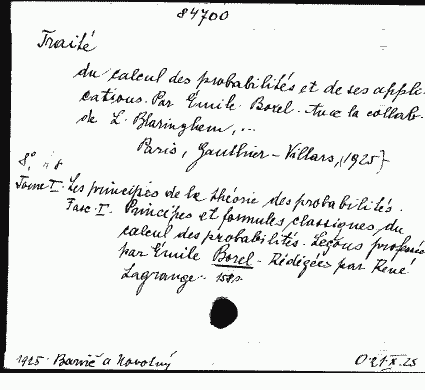 84700
Traité
du calcul des probabilités et de ses appli-
cations. Par Émile Borel. Avec la collab.
de L. Blaringhem, ...
Paris, Gauthier-Villars, (1925)
8°.
Tome I. Les principes de la théorie des probabilités.
Fasc. I. Principes et formules classiques du
calcul des probabilités. Leçons professées
par Émile Borel. Rédigées par René
Lagrange.
1925. Barvič a Novotný
21.X.25